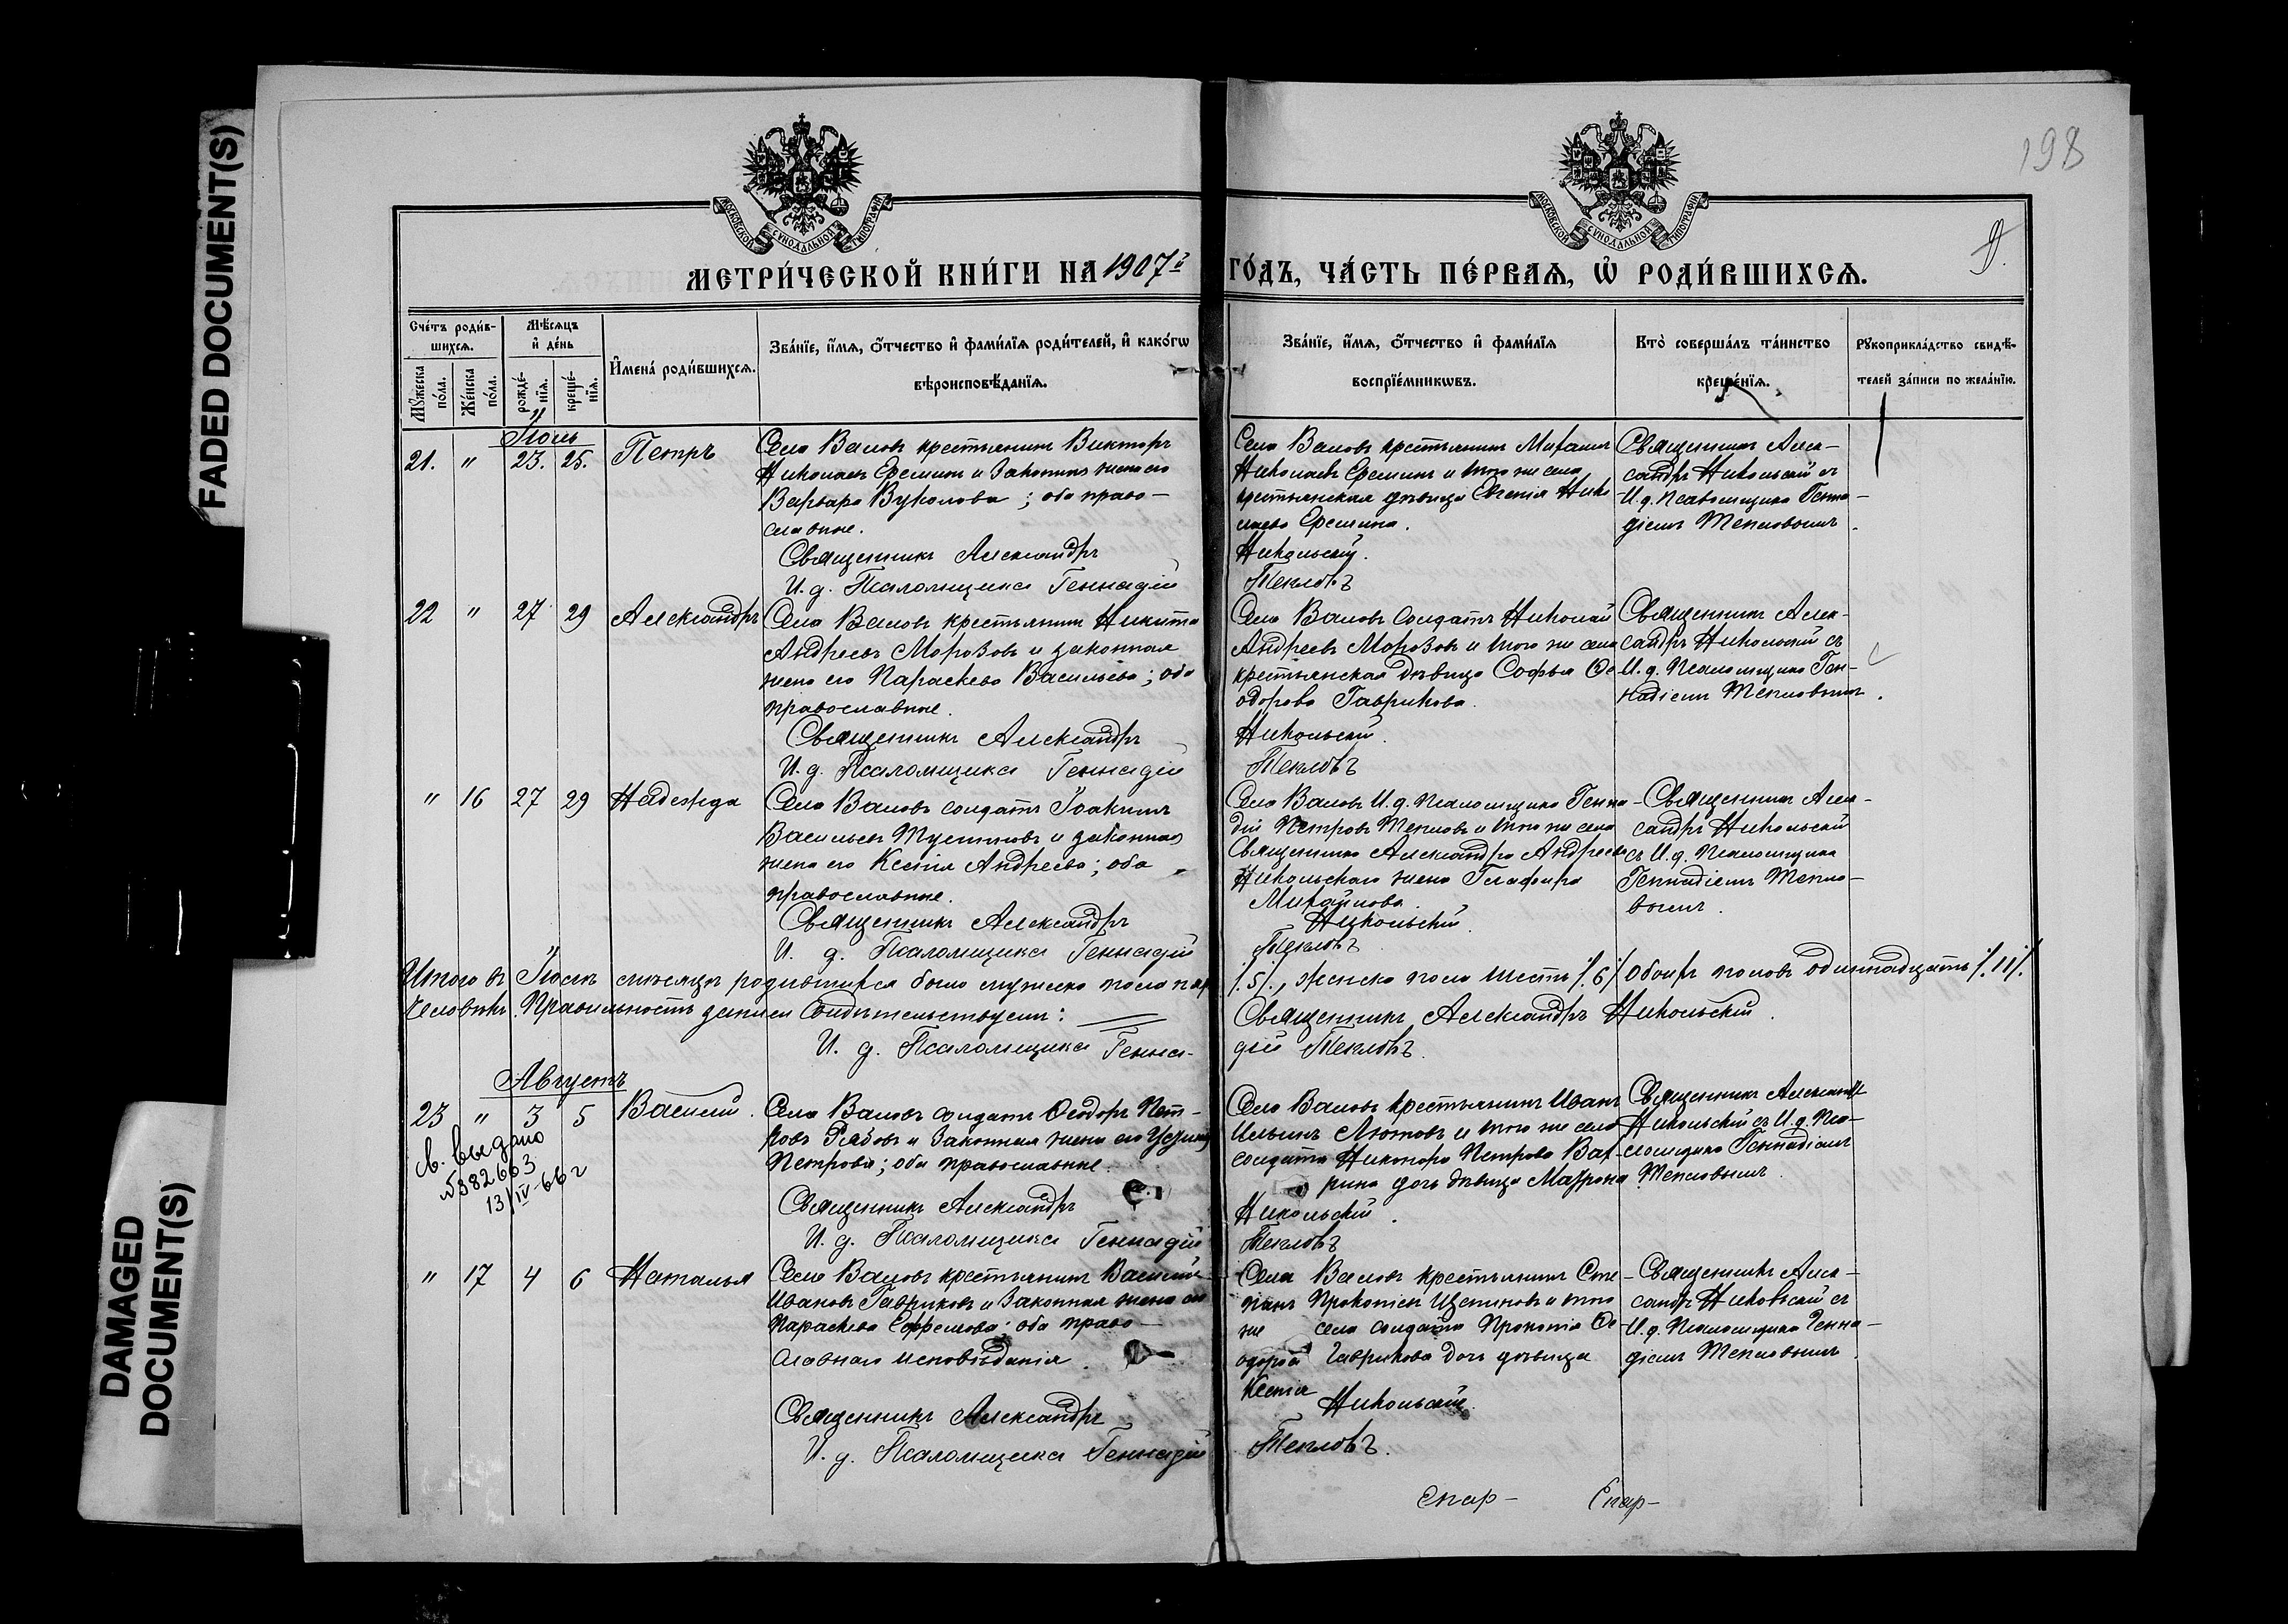 FADED DOCUMENT(S)
DAMAGED
DOCUMENT(S)
198
9.
МОСКОВСКОЙ СѴНОДАЛЬНОЙ ТИПОГРАФІИ
МОСКОВСКОЙ СѴНОДАЛЬНОЙ ТИПОГРАФІИ
МЕТРИ́ЧЕСКОЙ КНИ́ГИ НА 1907й ГО́ДЪ, ЧА́СТЬ ПЕ́РВАѦ, Ѡ҆ РОДИ́ВШИХСѦ.
Сче́тъ роди́в-
шихсѧ.
Мꙋ́жеска по́ла.
Же́нска по́ла.
Мѣ́сѧцъ
и҆ де́нь
рожде́-нїѧ.
креще́-нїѧ.
И҆мена̀ роди́вшихсѧ.
Зва́нїе, и҆́мѧ, ѻ҆́тчество и҆ фами́лїѧ роди́телей, и҆ како́гѡ
вѣроисповѣ́данїѧ.
Зва́нїе, и҆́мѧ, ѻ҆́тчество и҆ фами́лїѧ
воспрїе́мникѡвъ.
Кто̀ соверша́лъ та́инство
креще́нїѧ.
Рꙋкоприкла́дство свидѣ́-
телей за́писи по жела́нїю.
Іюль
21. " 23. 25. Петръ
Села Валовъ крестьянинъ Викторъ
Николаевъ Ереминъ и законная жена его
Варвара Вуколова; оба право-
славные.
Священникъ Александръ
И. д. Псаломщика Геннадій
Села Валовъ крестьянинъ Михаилъ
Николаевъ Ереминъ и того же села
крестьянская дѣвица Евгенія Нико
лаева Еремина.
Никольскій.
Тепловъ
Священникъ Алек-
сандръ Никольскій съ
И. д. Псаломщика Генна-
діемъ Тепловымъ.
22 " 27 29 Александръ
Села Валовъ крестьянинъ Никита
Андреевъ Морозовъ и законная
жена его Параскева Васильева; оба
православные.
Священникъ Александръ
И. д. Псаломщика Геннадій
Села Валовъ солдатъ Николай
Андреевъ Морозовъ и того же села
крестьянская дѣвица Софья Ѳе
одорова Гаврикова.
Никольскій.
Тепловъ
Священникъ Алек-
сандръ Никольскій съ
И. д. Псаломщика Ген-
надіемъ Тепловымъ.
" 16 27 29 Надежда
Села Валовъ солдатъ Іоакимъ
Васильевъ и законная
жена его Ксенія Андреева; оба
православные.
Священникъ Александръ
И. д. Псаломщика Геннадій
Села Валовъ И. д. Псаломщика Генна-
дій Петровъ Тепловъ и того же села
Священника Александра Андреева
Никольскаго жена Глафира
Михайлова.
Никольскій.
Тепловъ
Священникъ Алек-
сандръ Никольскій
съ И. д. Псаломщика
Геннадіемъ Тепло-
вымъ.
Итого въ Іюлѣ мѣсяцѣ родившихся было мужеска пола пять /.5/., женска пола шесть /.6/. обоихъ половъ одиннадцать /.11/.
человѣкъ. Правильность записи свидѣтельствуемъ: Священникъ Александръ Никольскій.
И. д. Псаломщика Генна-
дій Тепловъ.
Августъ
23 " 3 5 Василій.
св. выдано
№382663
13/IV-66 г
Села Валовъ солдатъ Ѳеодоръ Пет-
ровъ Рябовъ и законная жена его
Петрова; оба православные.
Священникъ Александръ
И. д. Псаломщика Геннадій
Села Валовъ крестьянинъ Иванъ
Ильинъ Лютовъ и того же села
солдата Никонора Петрова Вав-
рина дочь дѣвица Матрона
Никольскій.
Тепловъ
Священникъ Александръ
Никольскій съ И. д. Пса-
ломщика Геннадіемъ
Тепловымъ.
" 17 4 6 Наталья
Села Валовъ крестьянинъ Василій
Ивановъ Гавриковъ и законная жена его
Параскева Ефремова; оба право-
славнаго исповѣданія.
Священникъ Александръ
И. д. Псаломщика Геннадій
Села Валовъ крестьянинъ Сте-
панъ Прокопіевъ Щетиновъ и того
же села солдата Прокопія Ѳе-
одорова Гаврикова дочь дѣвица
Ксенія
Никольскій.
Тепловъ.
Священникъ Алек-
сандръ Никольскій съ
И. д. Псаломщика Генна-
діемъ Тепловымъ
Епар- Епар-